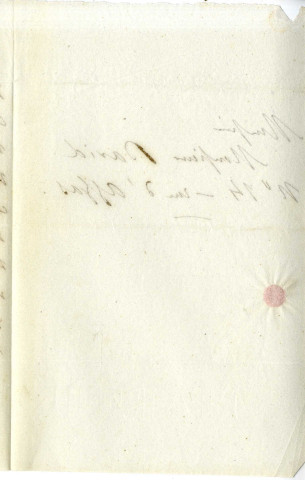 Monsieur
Monsieur David
N° 14 – rue d'Assas.